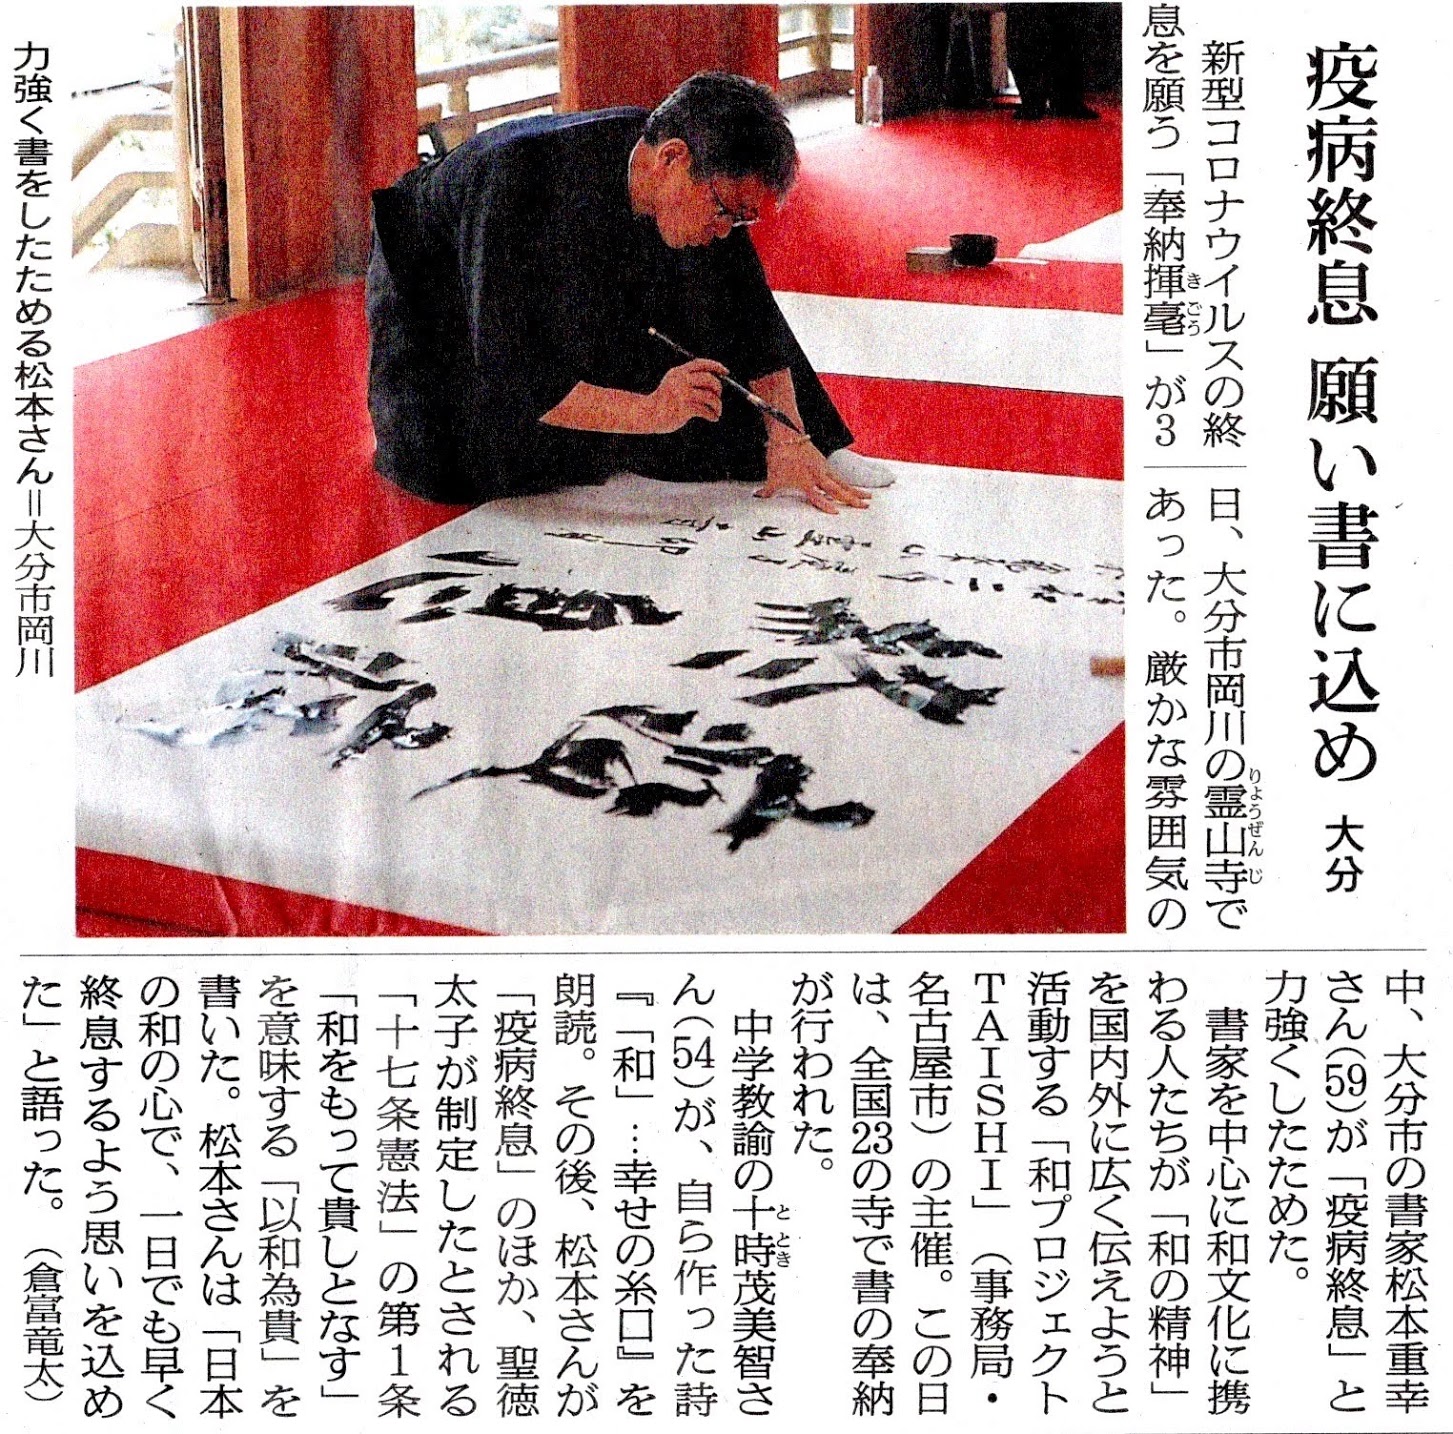 疫病終息 願い書に込め 大分
新型コロナウイルスの終
息を願う「奉納揮毫」が3
きごう
日、大分市岡川の霊山寺で
りょうぜんじ
あった。厳かな雰囲気の
中、大分市の書家松本重幸
さん(59)が「疫病終息」と
力強くしたためた。
書家を中心に和文化に携
わる人たちが「和の精神」
を国内外に広く伝えようと
活動する「和プロジェクト
TAISHI」（事務局・
名古屋市）の主催。この日
は、全国23の寺で書の奉納
が行われた。
中学教諭の十時茂美智さ
ととき
ん(54)が、自ら作った詩
『「和」…幸せの糸口』を
朗読。その後、松本さんが
「疫病終息」のほか、聖徳
太子が制定したとされる
「十七条憲法」の第1条
「和をもって貴しとなす」
を意味する「以和為貴」を
書いた。松本さんは「日本
の和の心で、一日でも早く
終息するよう思いを込め
た」と語った。（倉富竜太）
力強く書をしたためる松本さん＝大分市岡川